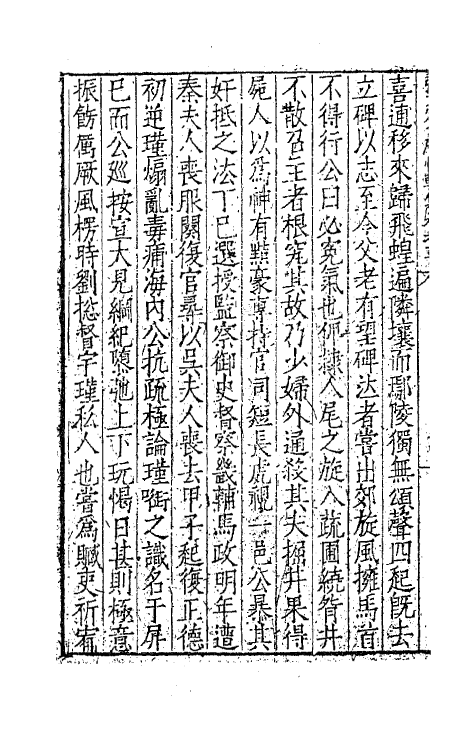 喜逋移來歸飛蝗遍隣壤而鄢陵獨無頌聲四起既去
立碑以志至今父老有望碑泣者嘗出郊旋風擁馬首
不得行公曰必寃氣也佩隸人尾之旋入蔬圃繞眢井
不散召主者根究其故乃少婦外通殺其夫掘井果得
屍人以爲神有黠豪專持官司短長虎視一邑公暴其
奸抵之法丁巳選授監察御史督察畿輔馬政明年遭
秦夫人喪服闋復官尋以吳夫人喪去甲子起復正德
初逆瑾煽亂毒痡海內公抗疏極論瑾銜之識名于屏
巳而公巡按宣大見綱紀隳弛上下玩愒日甚則極意
振飭厲厥風楞時劉揔督宇瑾私人也嘗爲贓吏祈宥